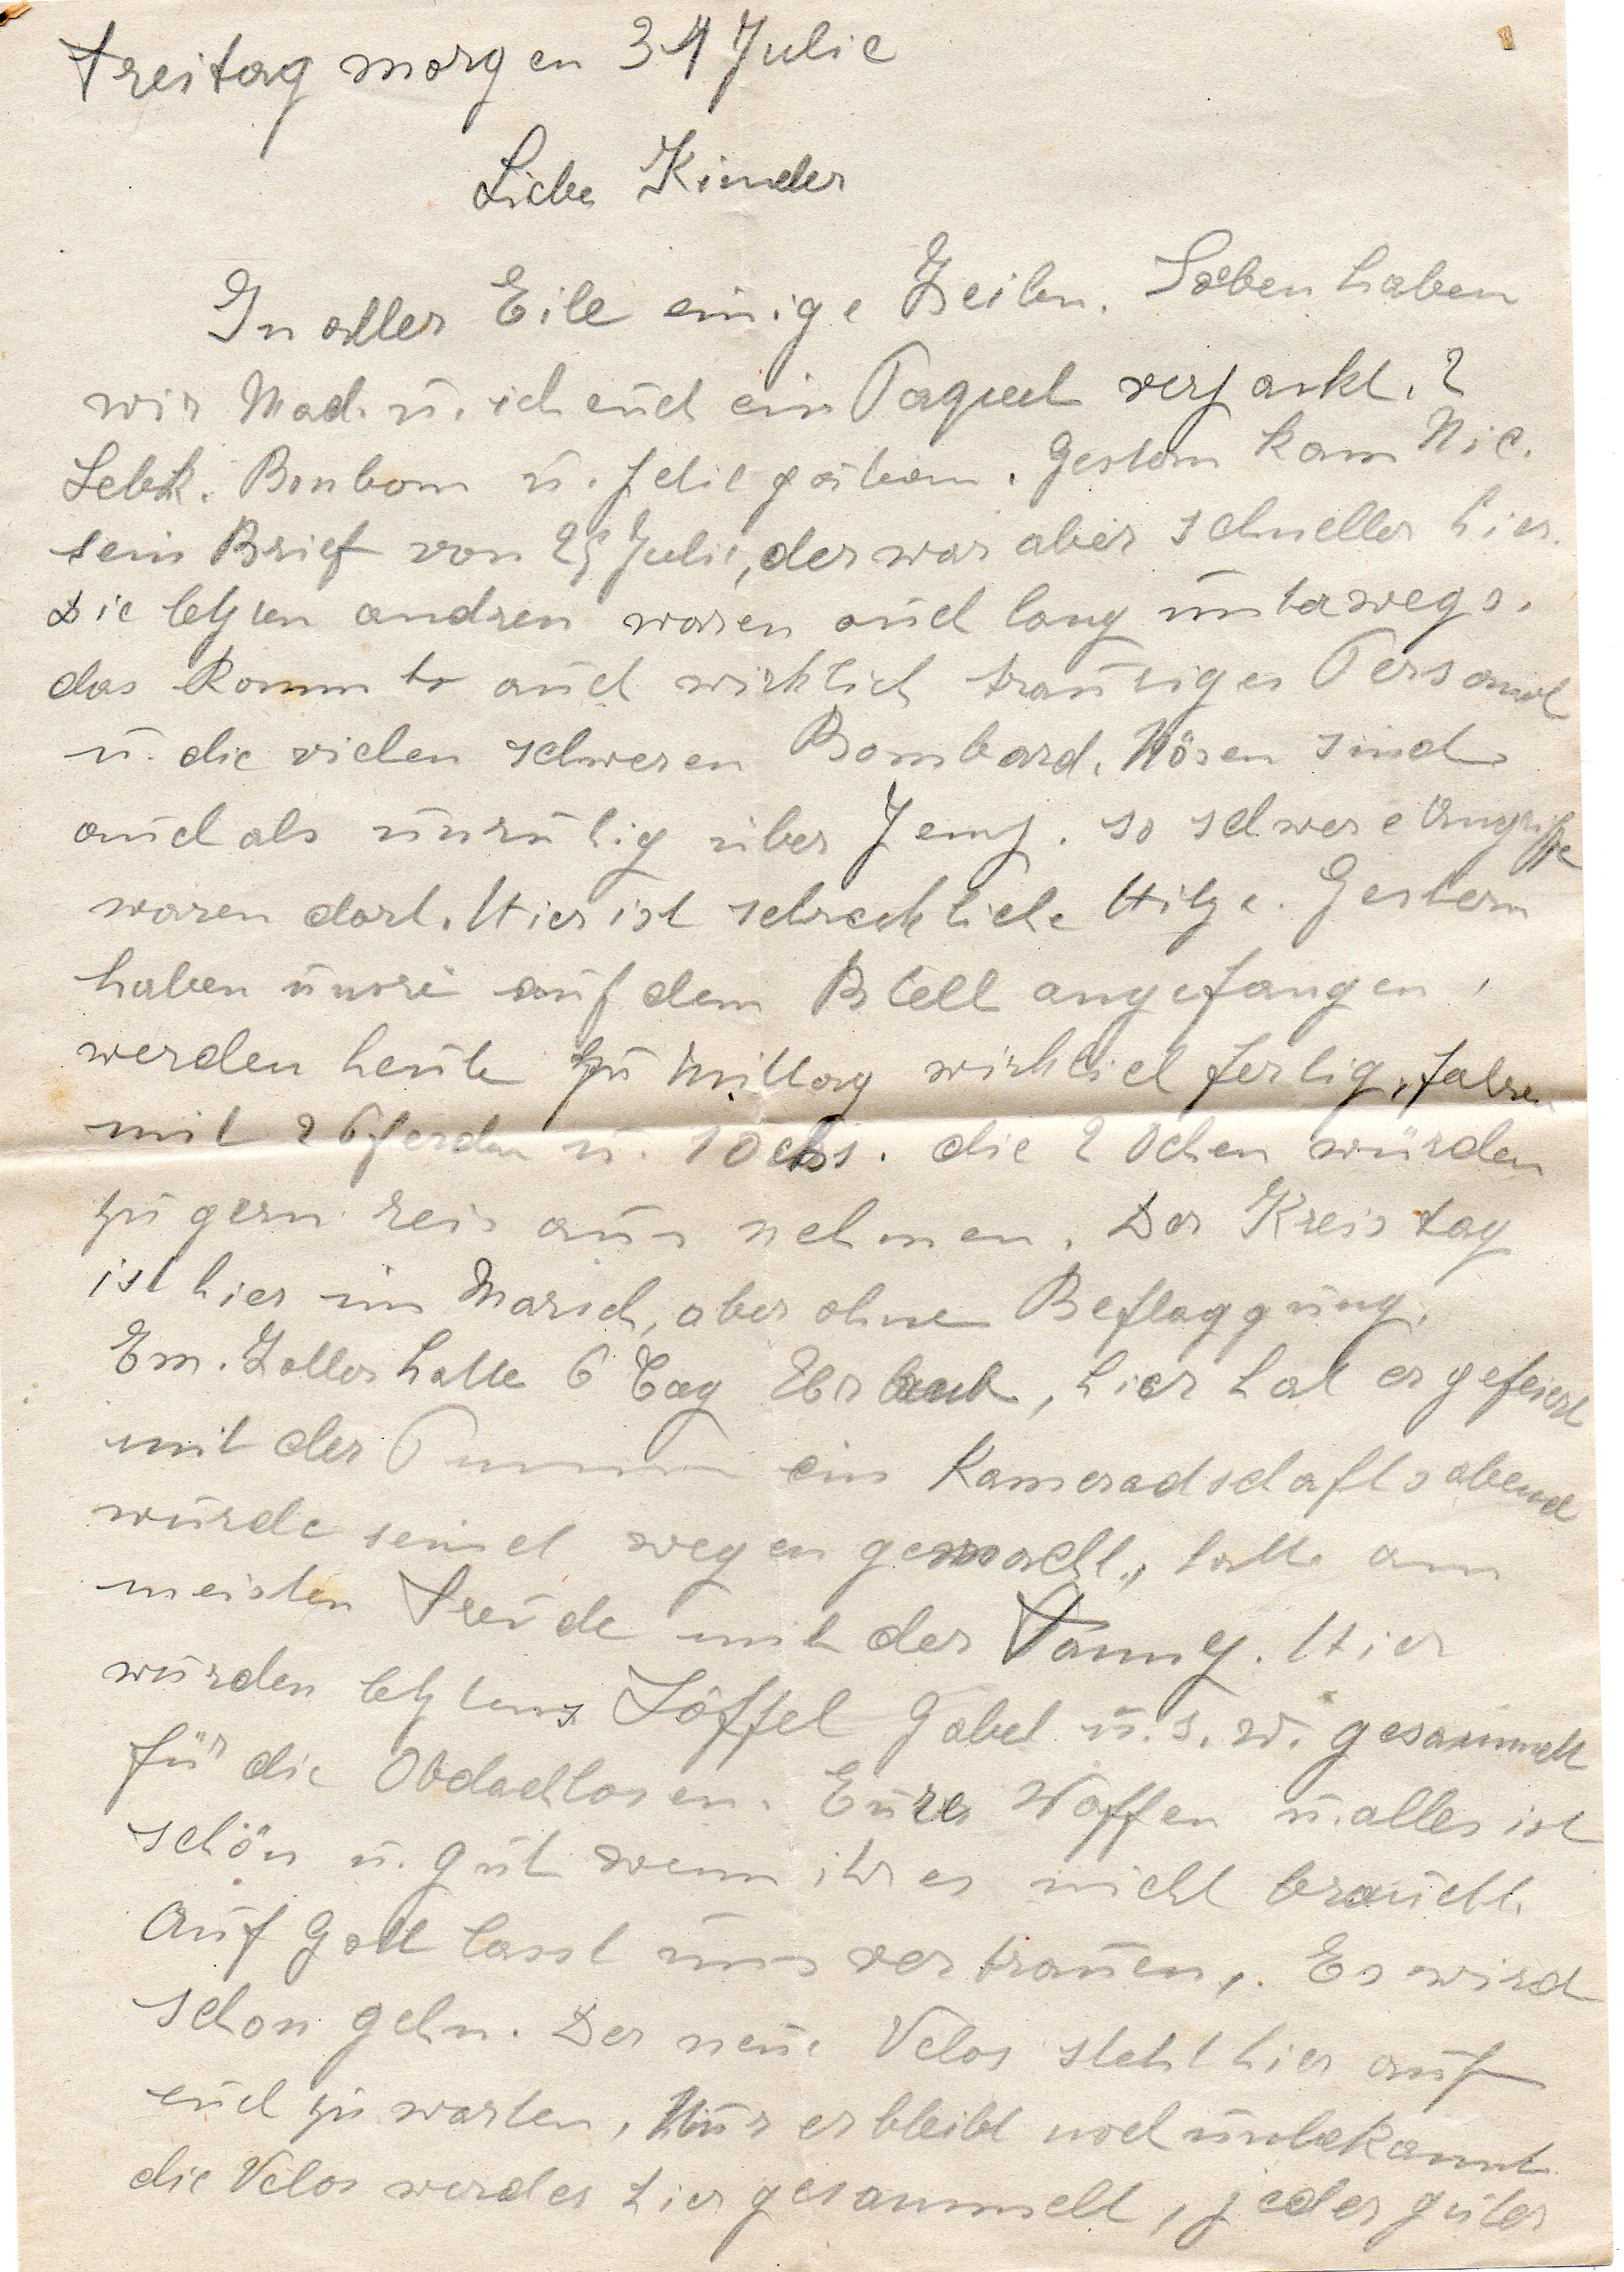 Freitag morgen 31 Julie
Liebe Kinder
In aller Eile einige Zeilen. Soeben haben
wir Mad. u. ich euch ein Paquet verpackt. 2
Lebk. Bonbon u. petit gâteau. Gestern kam Nic.
sein Brief von 25 Julie, der war aber schneller hier.
Die letzten andren waren auch lang unterwegs.
das kommt auch wirklich trauriges Personal
u. die vielen schweren Bombard. Hören sind
auch als unruhig über Jemp. so schwere Angriffe
waren dort. Hier ist schreckliche Hitze. Gestern
haben unsre auf dem Blell angefangen,
werden heute zu Mittag wirklich fertig, fahren
mit 2 Pferden u. 1 Ochs. die 2 Ochen würden
zu gern reis aus nehmen. Der Kreistag
ist hier im Marsch, aber ohne Beflaggung.
Em. Zoller hatte 6 Tag Urlaub, hier hat er gefeiert
mit der ein Kameradschaftsabend
wurde seinet wegen gemacht, hatte am
meisten Freude mit der Fanny. Hier
wurden letztens Löffel Gabel u. s. w. gesammelt
für die Obdachlosen. Eures Waffen u. alles ist
schön u. gut wenn ihr es nicht braucht.
Auf Gott lasst uns vertrauen, Es wird
schon gehn. Der neue Velos steht hier auf
euch zu warten, Nur er bleibt noch unbekannt
die Velos werdes hier gesammelt, jeder guter